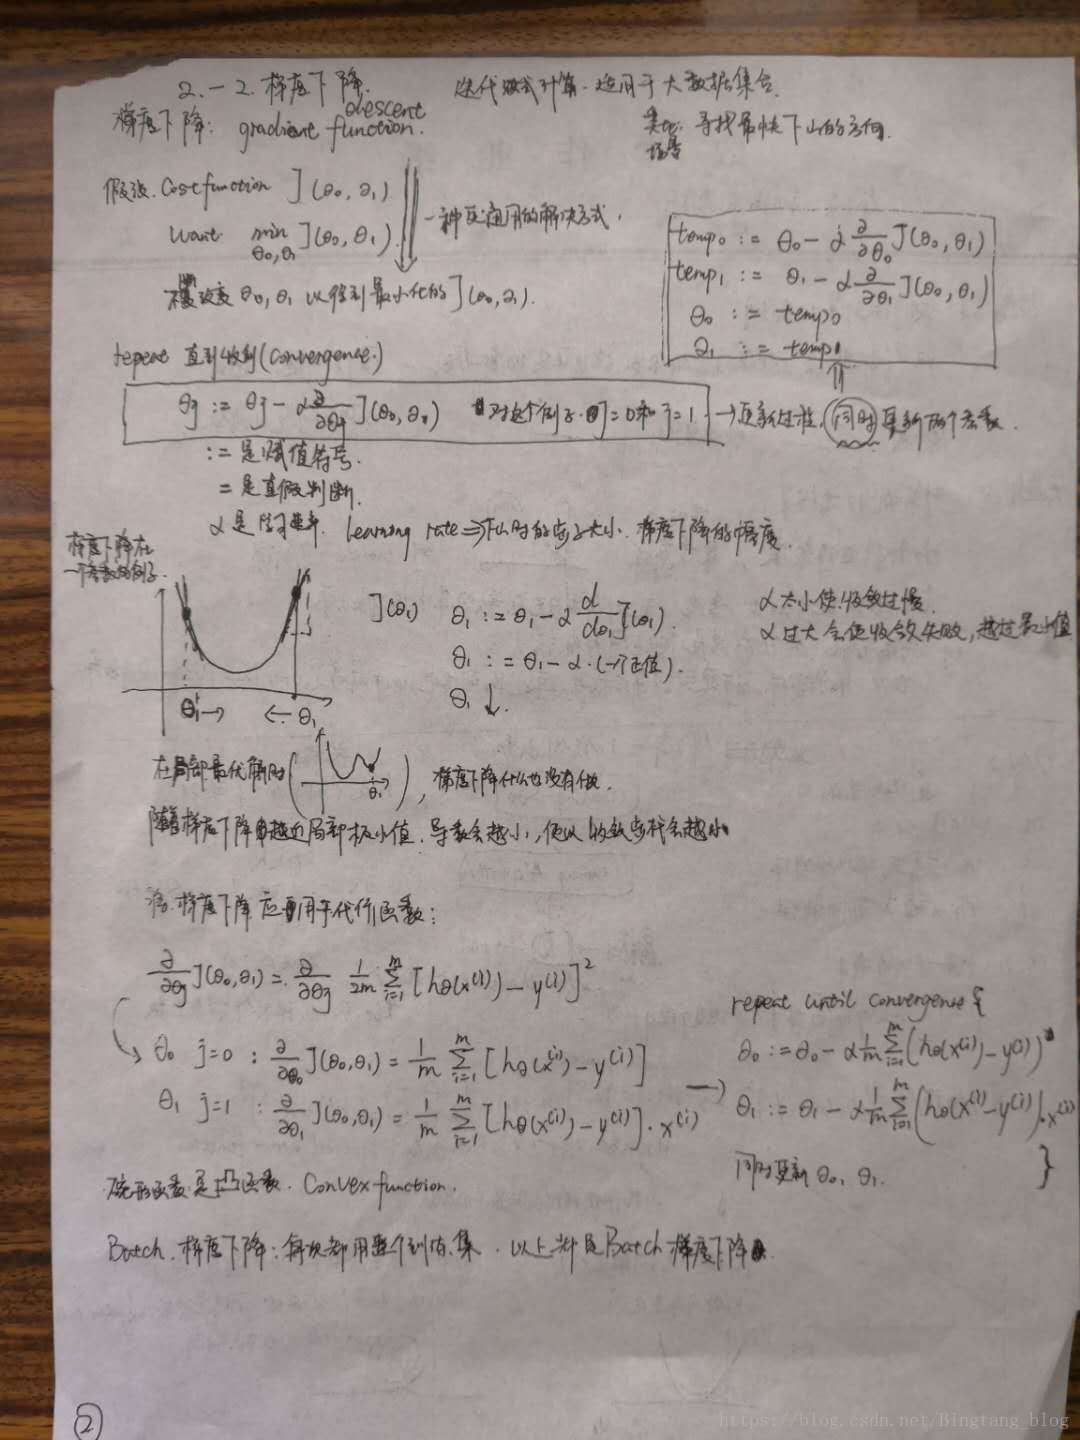 2.-2.梯度下降. 迭代试计算.适用于大数据集合.
梯度下降: gradient descent function.
类比场景 寻找最快下山的方向.
假设. Cost function J(θ₀,θ₁)
Want min J(θ₀,θ₁).
θ₀,θ₁
一种更通用的解决方式.
改变θ₀,θ₁以得到最小化的J(θ₀,θ₁).
temp₀ := θ₀ - α ∂/∂θ₀ J(θ₀,θ₁)
temp₁ := θ₁ - α ∂/∂θ₁ J(θ₀,θ₁)
θ₀ := temp₀
θ₁ := temp₁
repeat 直到收敛(convergence.)
θj := θj - α ∂/∂θj J(θ₀,θ₁) 对这个例子.j=0和j=1 → 更新过程,同时更新两个参数.
:= 是赋值符号.
= 是真假判断.
α是学习速率. learning rate ⇒ 下山时的步子大小.梯度下降的幅度.
梯度下降在
一个参数的例子.
J(θ₁) θ₁ := θ₁ - α d/dθ₁ J(θ₁).
θ₁ := θ₁ - α·(一个正值).
θ₁ ↓.
α太小使收敛过慢.
α过大会使收敛失败,越过最小值
θ₁→ ←θ₁
在局部最优解时( θ₁ ),梯度下降什么也没有做.
随着梯度下降越近局部极小值.导数会越小,使以收敛步伐会越小
将梯度下降应用于代价函数:
∂/∂θj J(θ₀,θ₁) = ∂/∂θj 1/2m ∑ᵢ₌₁ᵐ [hθ(x⁽ⁱ⁾) - y⁽ⁱ⁾]²
θ₀ j=0 : ∂/∂θ₀ J(θ₀,θ₁) = 1/m ∑ᵢ₌₁ᵐ [hθ(x⁽ⁱ⁾) - y⁽ⁱ⁾]
θ₁ j=1 : ∂/∂θ₁ J(θ₀,θ₁) = 1/m ∑ᵢ₌₁ᵐ [hθ(x⁽ⁱ⁾) - y⁽ⁱ⁾]·x⁽ⁱ⁾
→
repeat until convergence {
θ₀ := θ₀ - α 1/m ∑ᵢ₌₁ᵐ (hθ(x⁽ⁱ⁾) - y⁽ⁱ⁾)
θ₁ := θ₁ - α 1/m ∑ᵢ₌₁ᵐ (hθ(x⁽ⁱ⁾) - y⁽ⁱ⁾)·x⁽ⁱ⁾
同时更新 θ₀, θ₁. }
碗形函数是凸函数. Convex function.
Batch.梯度下降:每次都用整个训练集.以上都是Batch梯度下降.
②
https://blog.csdn.net/Bingtang_blog